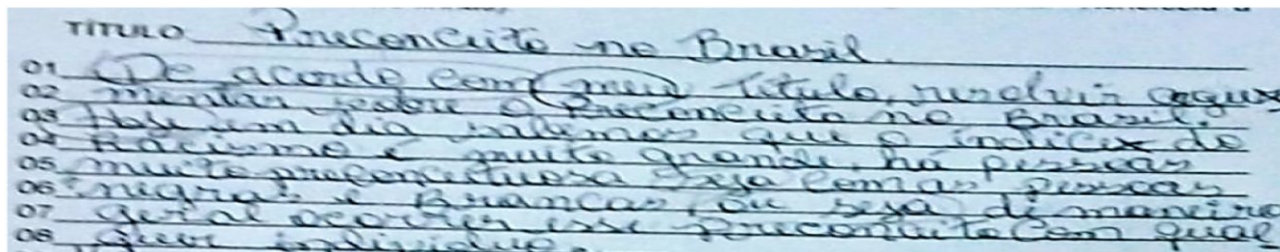 TÍTULO Preconceito no Brasil.
01 De acordo com meu título, resolvir argu
02 mentar sobre o Preconceito no Brasil.
03 Hoje em dia sabemos que o indice do
04 Racismo é muito grande, há pessoas
05 muito preconceituosa seja com as pessoas
06 negras e Brancas, ou seja di maneira
07 geral ocorrer esse Preconceito com qual
08 quer individuo.